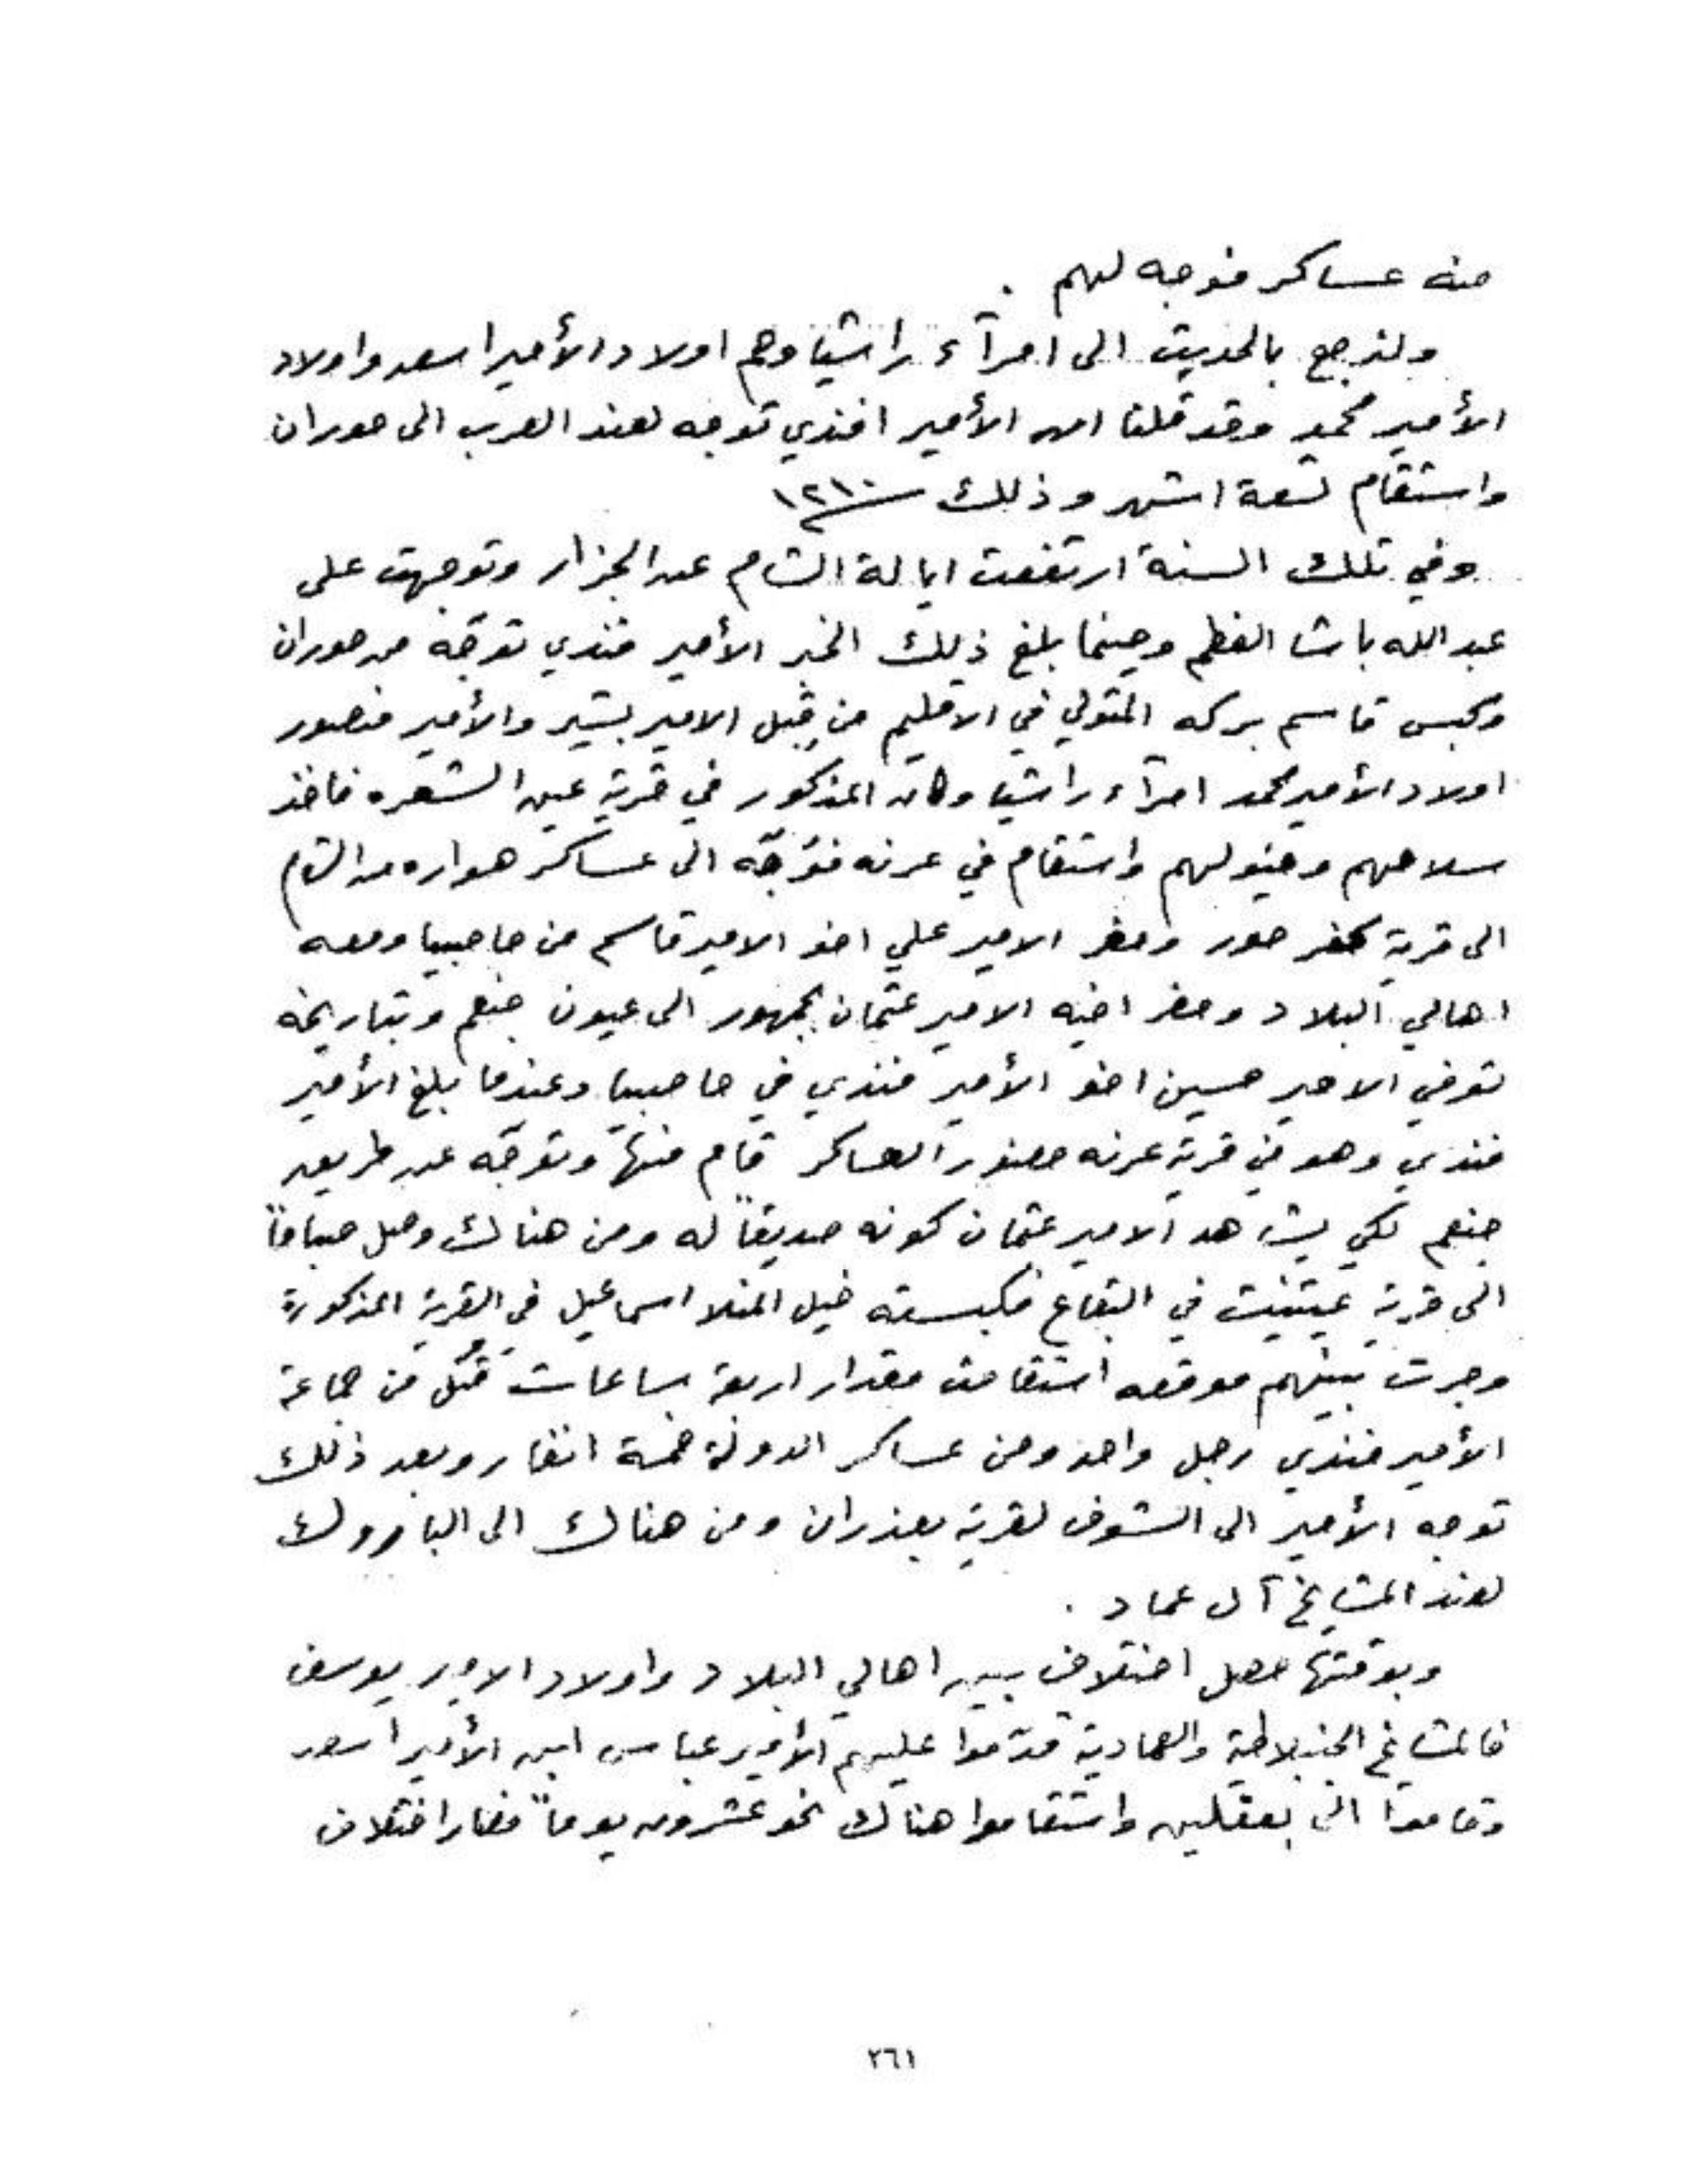 منه عساكر فوجه لهم .
ولنرجع بالحديث الى امرآء راشيا وهم اولاد الأمير اسعد واولاد
الأمير محمد وقد قلنا ان الأمير افندي توجه لعند العرب الى حوران
واستقام تسعة اشهر وذلك سنة ١٢١٠
وفي تلك السنة ارتفعت ايالة الشام عن الجزار وتوجهت على
عبد الله باشا العظم وحينما بلغ ذلك الخبر الأمير فندي توجّه من حوران
وكبس قاسم بركه المتولي في الاقليم من قِبل الامير بشير والأمير منصور
اولاد الأمير محمد امرآء راشيا وكان المذكور في قرية عين الشعره فاخذ
سلاحهم وخيولهم واستقام في عرنه فتوجّه الى عساكر هواره من الشام
الى قرية كفر حور وحضر الامير علي اخو الامير قاسم من حاصبيا ومعه
اهالي البلاد وحضر اخيه الامير عثمان بجمهور الى عيون جنعم وبتاريخه
توفي الامير حسين اخو الأمير فندي في حاصبيا وعندما بلغ الأمير
فندي وهو في قرية عرنه حضور العساكر قام منها وتوجّه عن طريق
جنعم لكي يشاهد الامير عثمان كونه صديقاً له ومن هناك وصل صباحاً
الى قرية عيتنيت في البقاع فكبسته خيل المنلا اسماعيل في القرية المذكورة
وجرت بينهم موقعه استقامت مقدار اربعة ساعات قُتل من جماعة
الأمير فندي رجل واحد ومن عساكر الدولة خمسة انفار وبعد ذلك
توجه الأمير الى الشوف لقرية بعذران ومن هناك الى الباروك
لعند المشايخ آل عماد .
وبوقتها حصل اختلاف بين اهالي البلاد واولاد الامير يوسف
فالمشايخ الجنبلاطية والعمادية قدّموا عليهم الأمير عباس ابن الأمير اسعد
وقاموا الى بعقلين واستقاموا هناك نحو عشرون يوماً فصار اختلاف
٢٦١